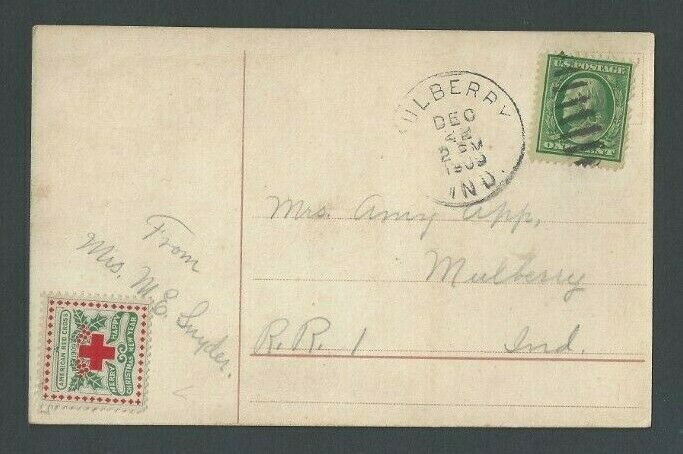 MULBERRY
DEC
2 PM
1909
IND.
U.S. POSTAGE
ONE CENT
Mrs. Amy App,
Mulberry
R.R. 1 Ind.
From
Mrs. M.E. Snyder.
AMERICAN RED CROSS
1909
MERRY CHRISTMAS
HAPPY NEW YEAR